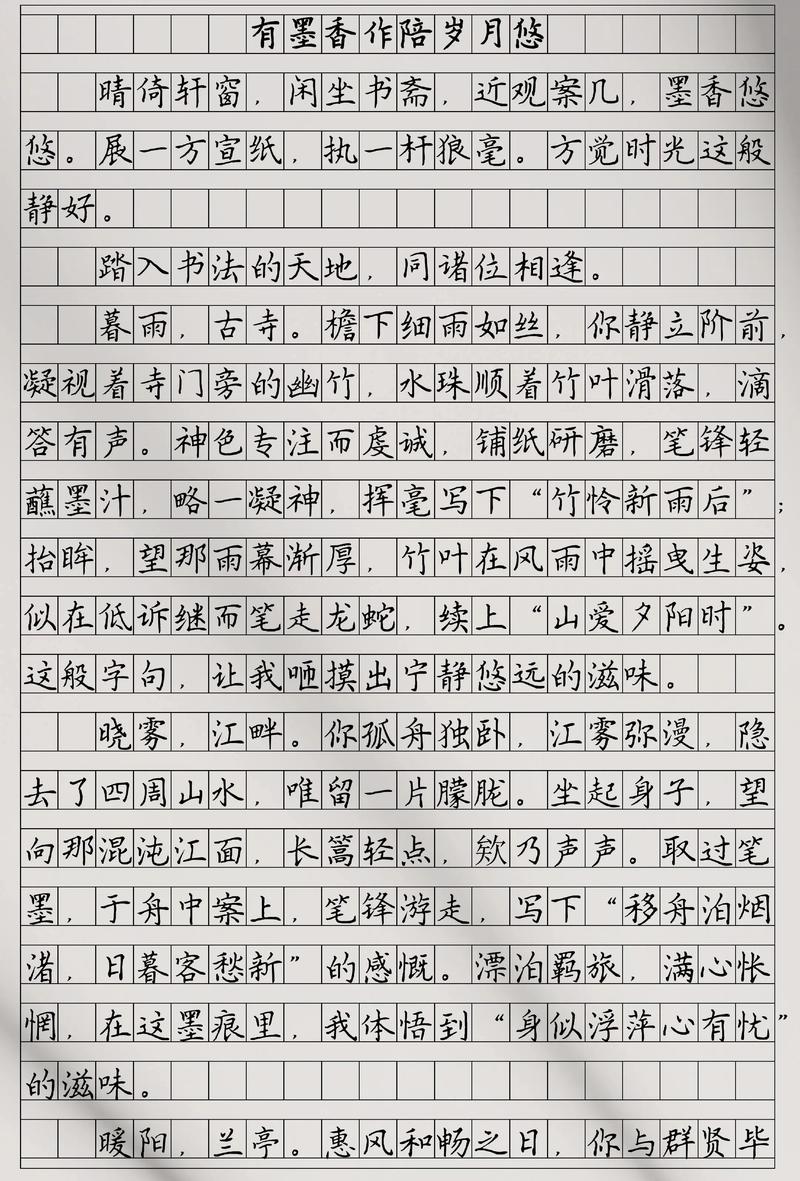 有墨香作陪岁月悠
晴倚轩窗，闲坐书斋，近观案几，墨香悠
悠。展一方宣纸，执一杆狼毫。方觉时光这般
静好。
踏入书法的天地，同诸位相逢。
暮雨，古寺。檐下细雨如丝，你静立阶前，
凝视着寺门旁的幽竹，水珠顺着竹叶滑落，滴
答有声。神色专注而虔诚，铺纸研磨，笔锋轻
蘸墨汁，略一凝神，挥毫写下“竹怜新雨后”；
抬眸，望那雨幕渐厚，竹叶在风雨中摇曳生姿，
似在低诉继而笔走龙蛇，续上“山爱夕阳时”。
这般字句，让我咂摸出宁静悠远的滋味。
晓雾，江畔。你孤舟独卧，江雾弥漫，隐
去了四周山水，唯留一片朦胧。坐起身子，望
向那混沌江面，长篙轻点，欸乃声声。取过笔
墨，于舟中案上，笔锋游走，写下“移舟泊烟
渚，日暮客愁新”的感慨。漂泊羁旅，满心怅
惘，在这墨痕里，我体悟到“身似浮萍心有忧”
的滋味。
暖阳，兰亭。惠风和畅之日，你与群贤毕